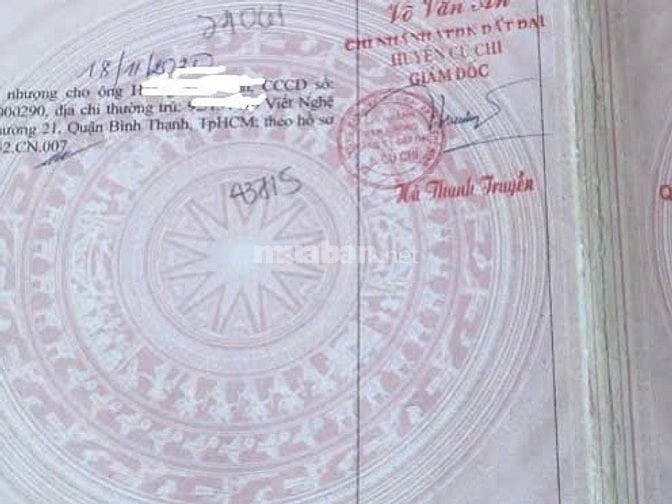 24061
Võ Văn An
CHI NHÁNH VPĐK ĐẤT ĐAI
HUYỆN CỦ CHI
GIÁM ĐỐC
18/11/2020
nhượng cho ông H CCCD số:
000290, địa chỉ thường trú: Viết Nghệ
ường 21, Quận Bình Thạnh, TpHCM; theo hồ sơ
2.CN.007
CỦ CHI
43815
Hà Thanh Truyền
muaban.net
Q